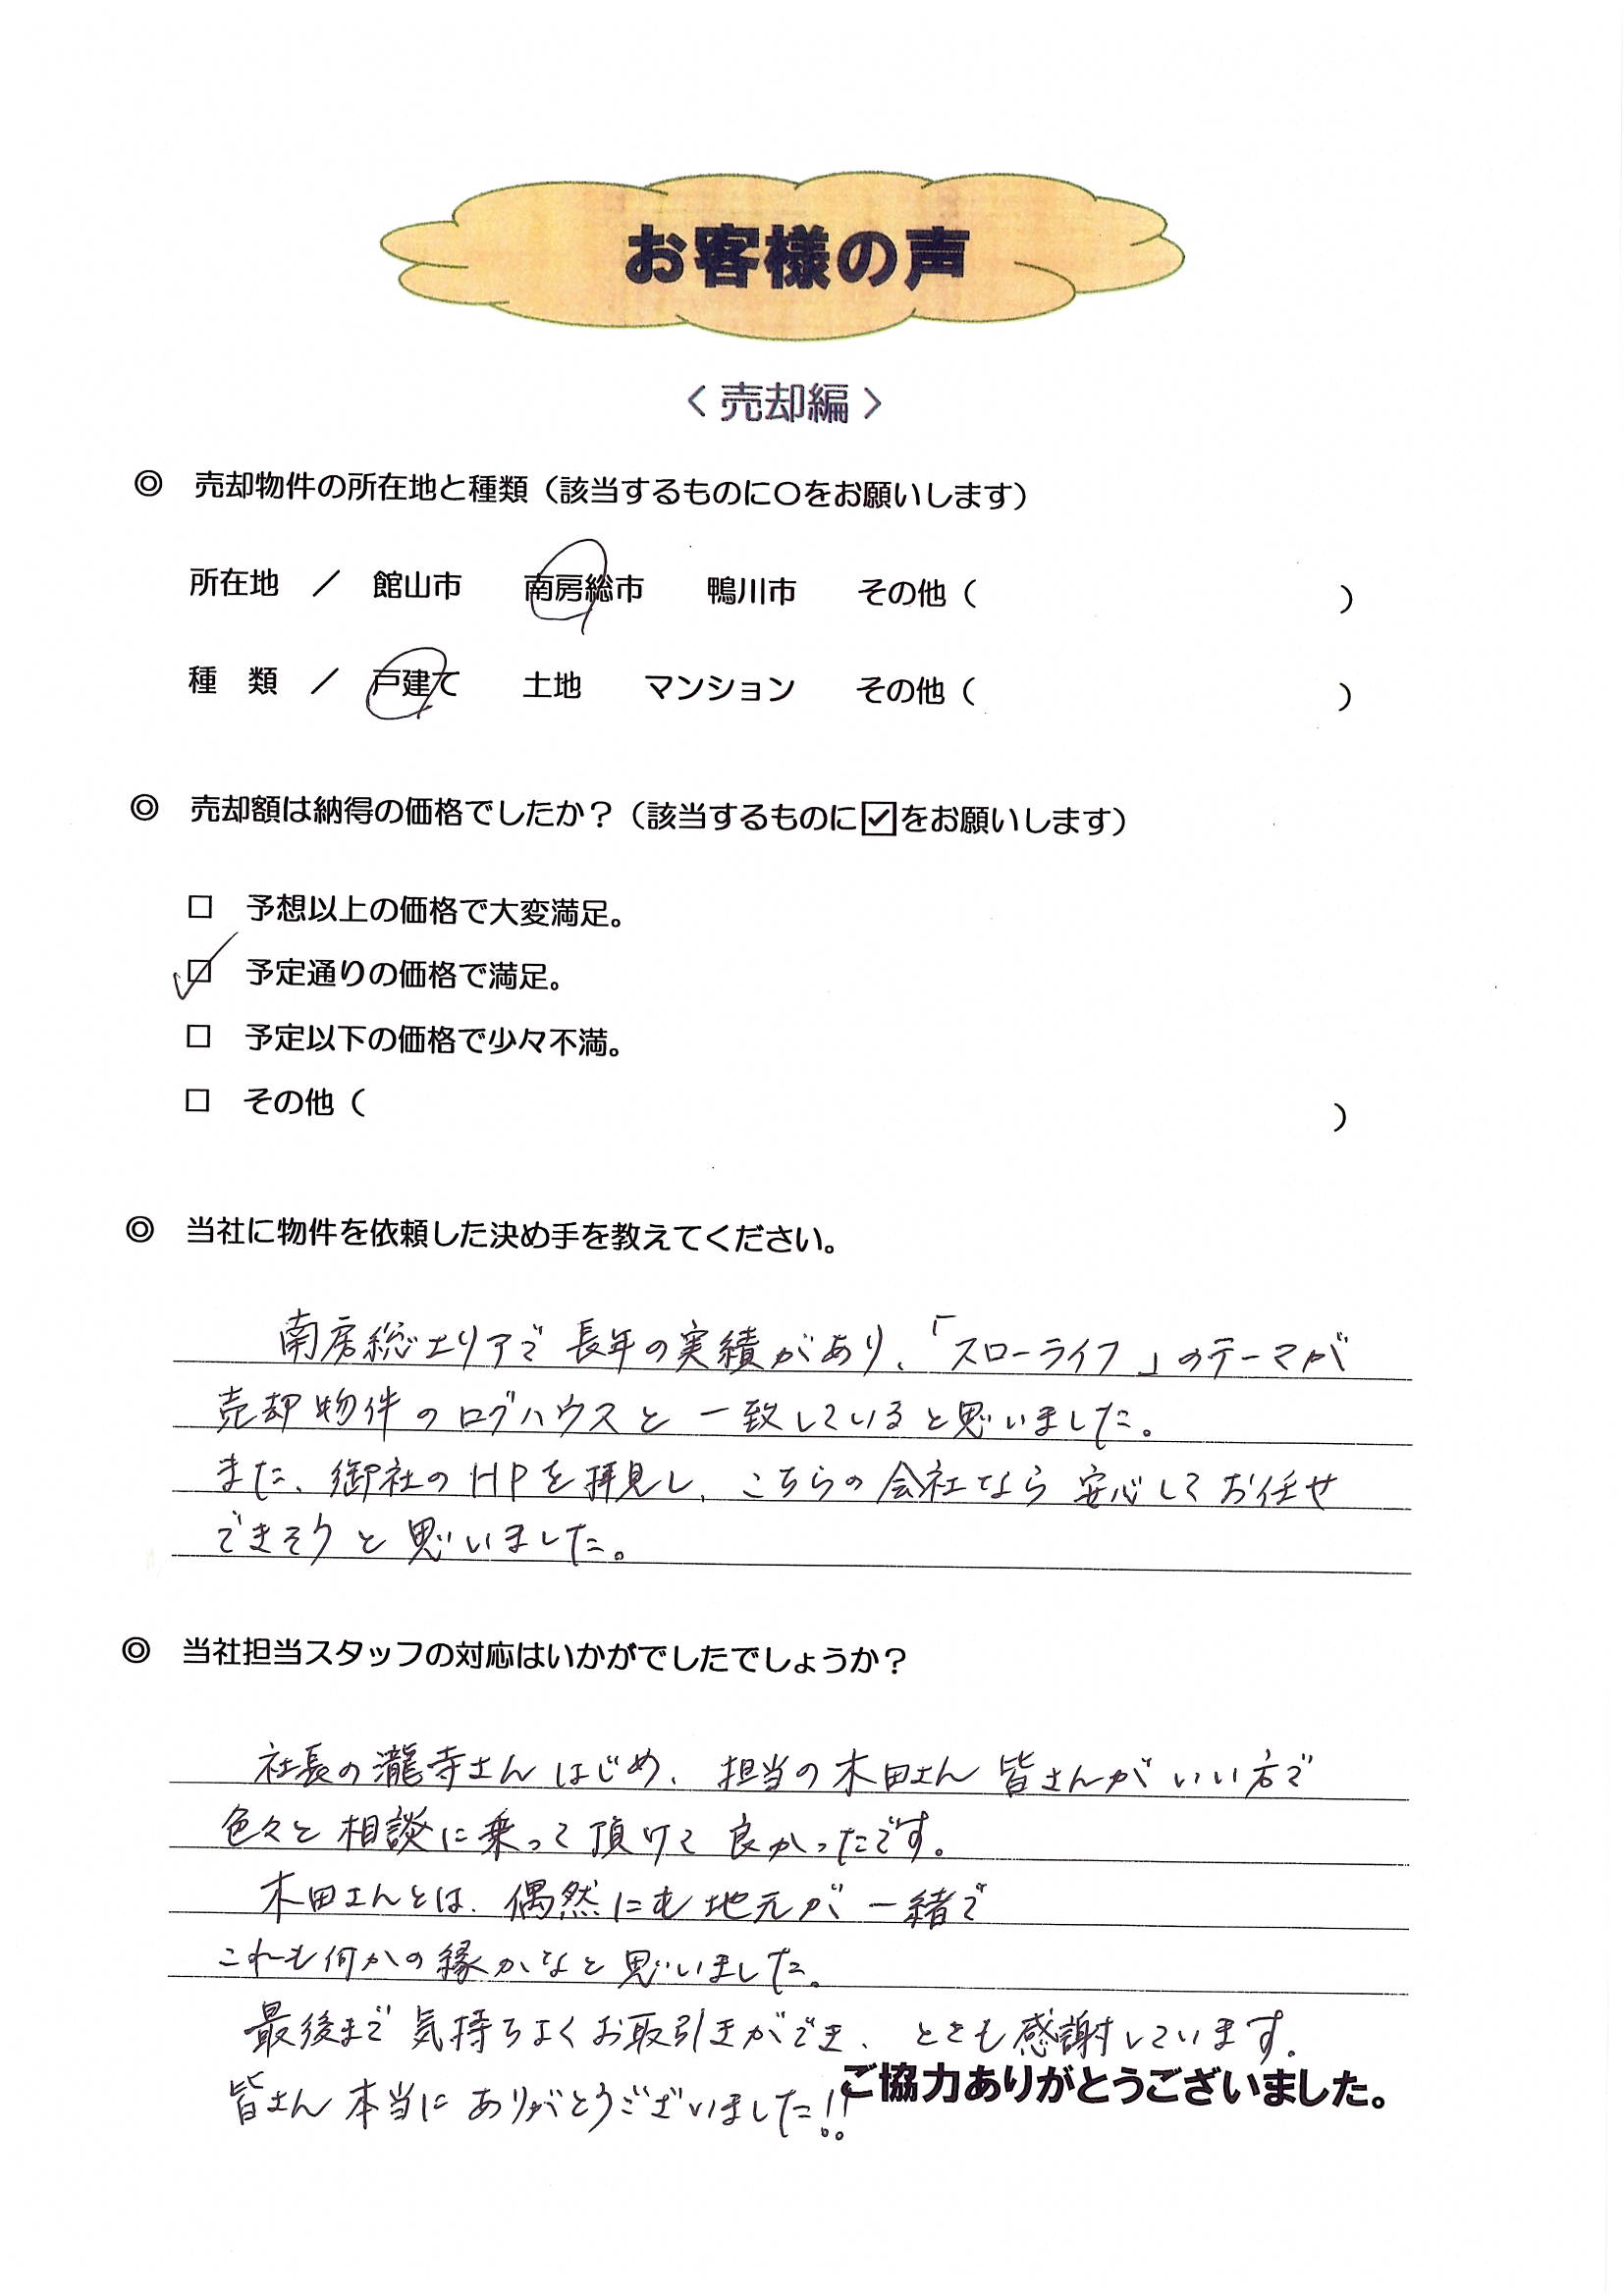 お客様の声
〈 売却編 〉
◎ 売却物件の所在地と種類（該当するものに〇をお願いします）
所在地 ／ 館山市 南房総市 鴨川市 その他（ ）
種 類 ／ 戸建て 土地 マンション その他（ ）
◎ 売却額は納得の価格でしたか？（該当するものに☑をお願いします）
□ 予想以上の価格で大変満足。
☑ 予定通りの価格で満足。
□ 予定以下の価格で少々不満。
□ その他（ ）
◎ 当社に物件を依頼した決め手を教えてください。
南房総エリアで長年の実績があり、「スローライフ」のテーマが
売却物件のログハウスと一致していると思いました。
また、御社のHPを拝見し、こちらの会社なら安心してお任せ
できそうと思いました。
◎ 当社担当スタッフの対応はいかがでしたでしょうか？
社長の瀧寺さんはじめ、担当の木田さん皆さんがいい方で
色々と相談に乗って頂けて良かったです。
木田さんとは、偶然にも地元が一緒で
これも何かの縁かなと思いました。
最後まで気持ちよくお取引きができ、とても感謝しています。
皆さん本当にありがとうございました!!
ご協力ありがとうございました。